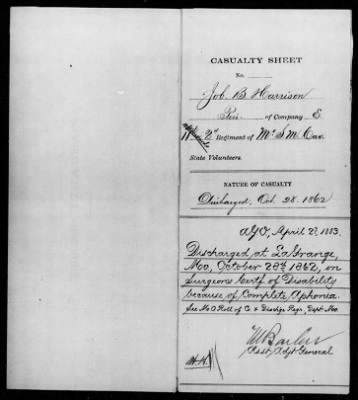 CASUALTY SHEET
No.
Job. B Harrison
Pri. of Company E
2d Regiment of Mo S. M. Cav.
State Volunteers.
NATURE OF CASUALTY
Discharged, Oct. 28. 1862
AGO, April 23, 1883.
Discharged at LaGrange,
Mo, October 28th 1862, on
Surgeons Certf. of Disability
because of Complete Aphonia.
See M. O Roll of Co & Dischge Pags, Dept. Mo.
Asst. Adjt General